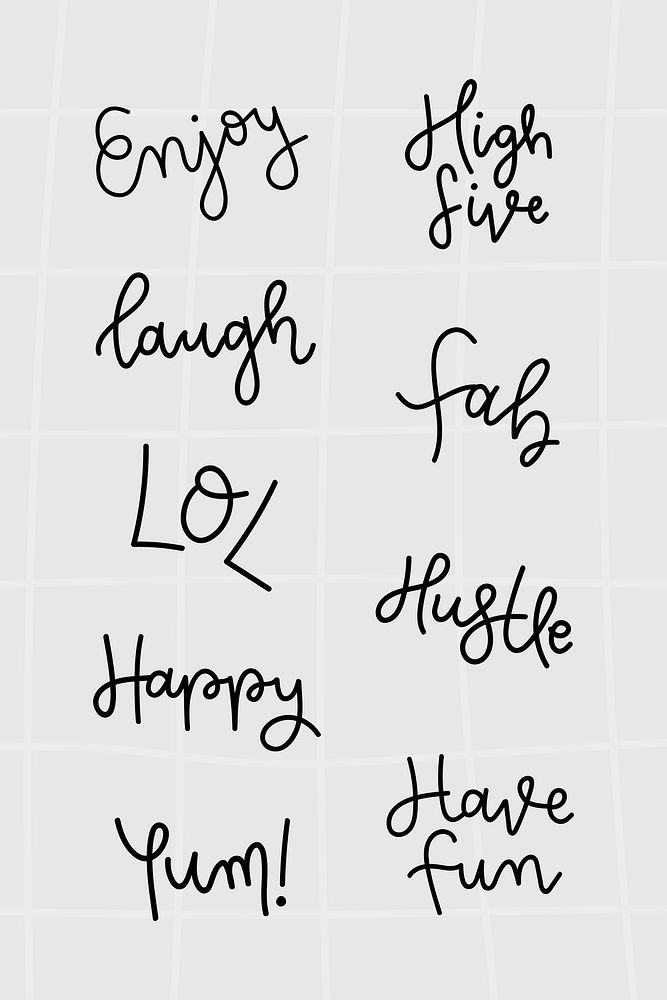 Enjoy
laugh
LOL
Happy
Yum!
High
five
fab
Hustle
Have
fun